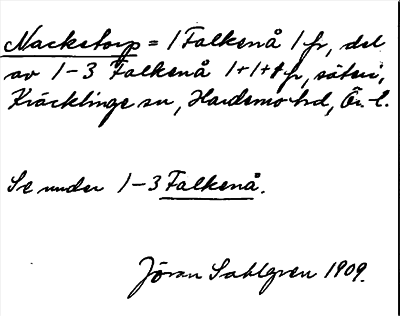 Nacketorp = 1 Falkenå 1 fr, del
av 1-3 Falkenå 1+1+1 fr, säteri,
Kräcklinge sn, Hardemo hd, Ör. l.
Se under 1-3 Falkenå.
Jöran Sahlgren 1909.